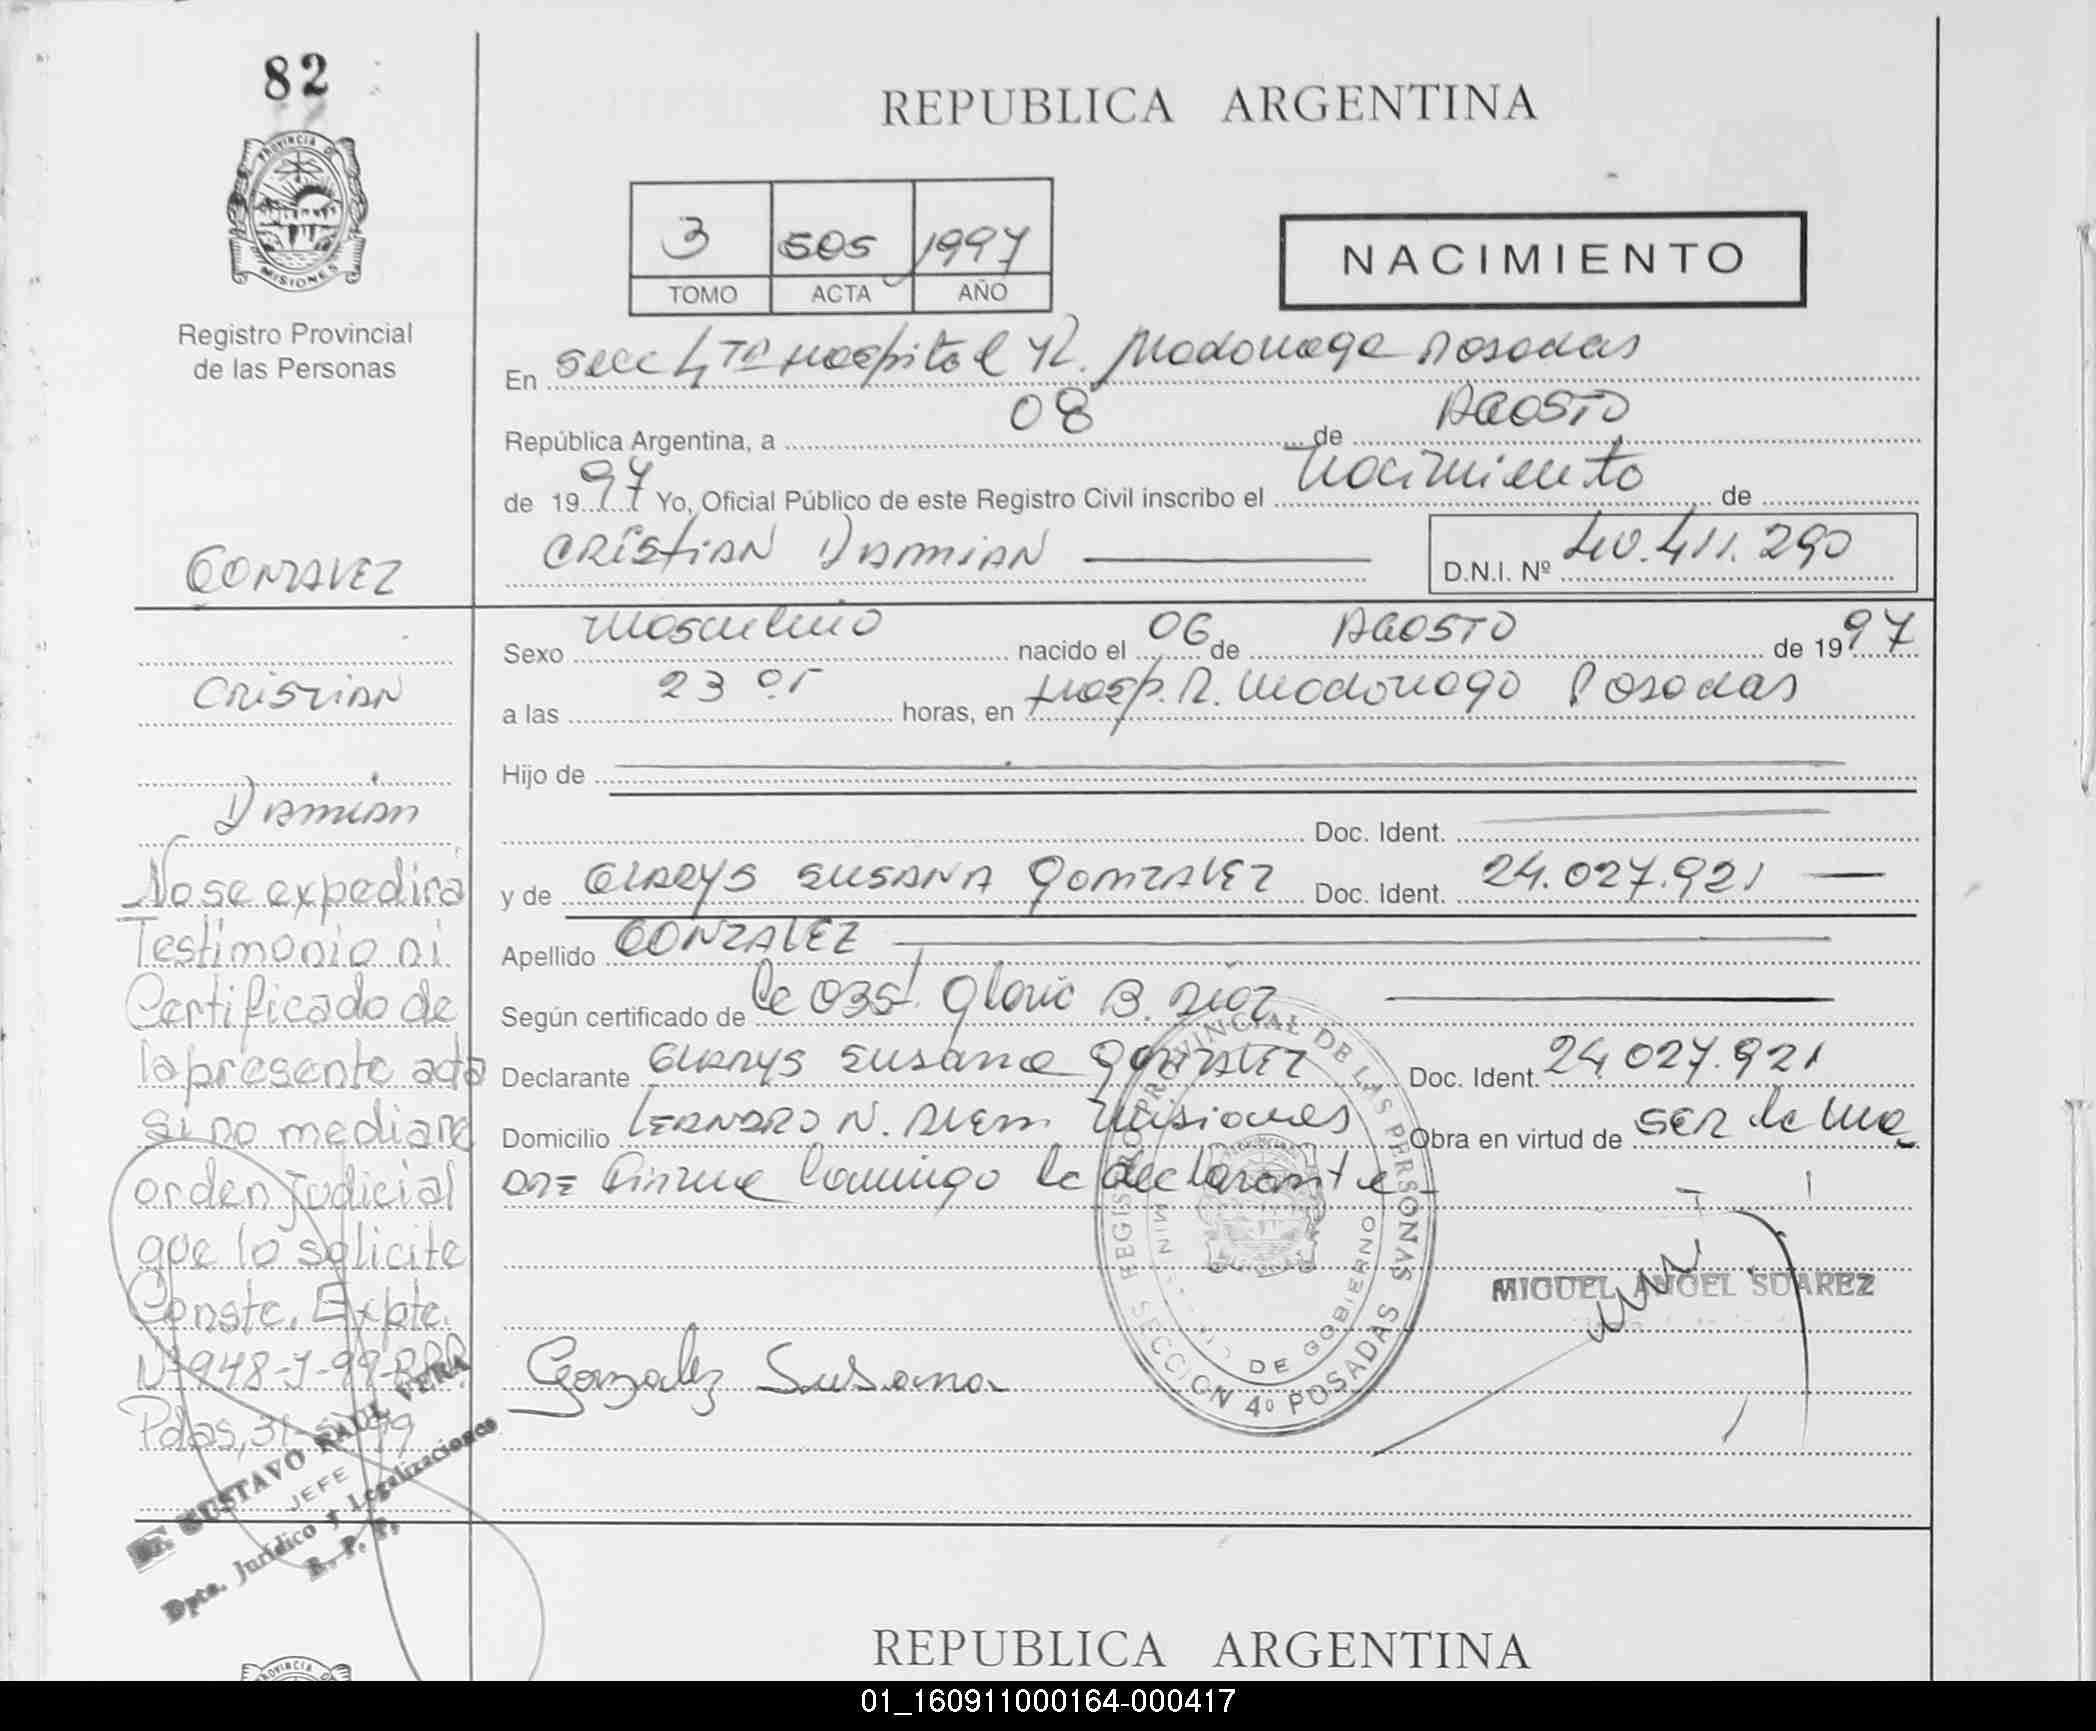 82
PROVINCIA D
MISIONES
Registro Provincial
de las Personas
REPUBLICA ARGENTINA
3 505 1997
TOMO ACTA AÑO
NACIMIENTO
En Secc 4ta Hospital R. Madariaga Posadas
República Argentina, a 08 de AGOSTO
de 1997 Yo, Oficial Público de este Registro Civil inscribo el Nacimiento de
CRISTIAN DAMIAN D.N.I. Nº 40.411.290
GONZALEZ
CRISTIAN
DAMIAN
Sexo Masculino nacido el 06 de AGOSTO de 1997
a las 23 05 horas, en Hosp. R. Madariaga Posadas
Hijo de
Doc. Ident.
y de GLADYS SUSANA GONZALEZ Doc. Ident. 24.027.921
Apellido GONZALEZ
Según certificado de la Obst. Gloria B. Diaz
Declarante GLADYS Susana GONZALEZ Doc. Ident. 24.027.921
Domicilio LEANDRO N. ALEM Misiones Obra en virtud de SER la Ma
dre Firma la declarante
No se expedirá
Testimonio ni
Certificado de
la presente acta
si no mediare
orden judicial
que lo solicite
Conste. Expte.
Nº 948-J-99-RPP
Pdas, 31 99
Dr. GUSTAVO RAUL VERA
JEFE
Dpto. Jurídico y Legalizaciones
R. P. P.
Gonzalez Susana
REGISTRO PROVINCIAL DE LAS PERSONAS
SECCION 4º POSADAS
DE GOBIERNO
MIGUEL ANGEL SUAREZ
REPUBLICA ARGENTINA
PROVINCIA D
01_160911000164-000417